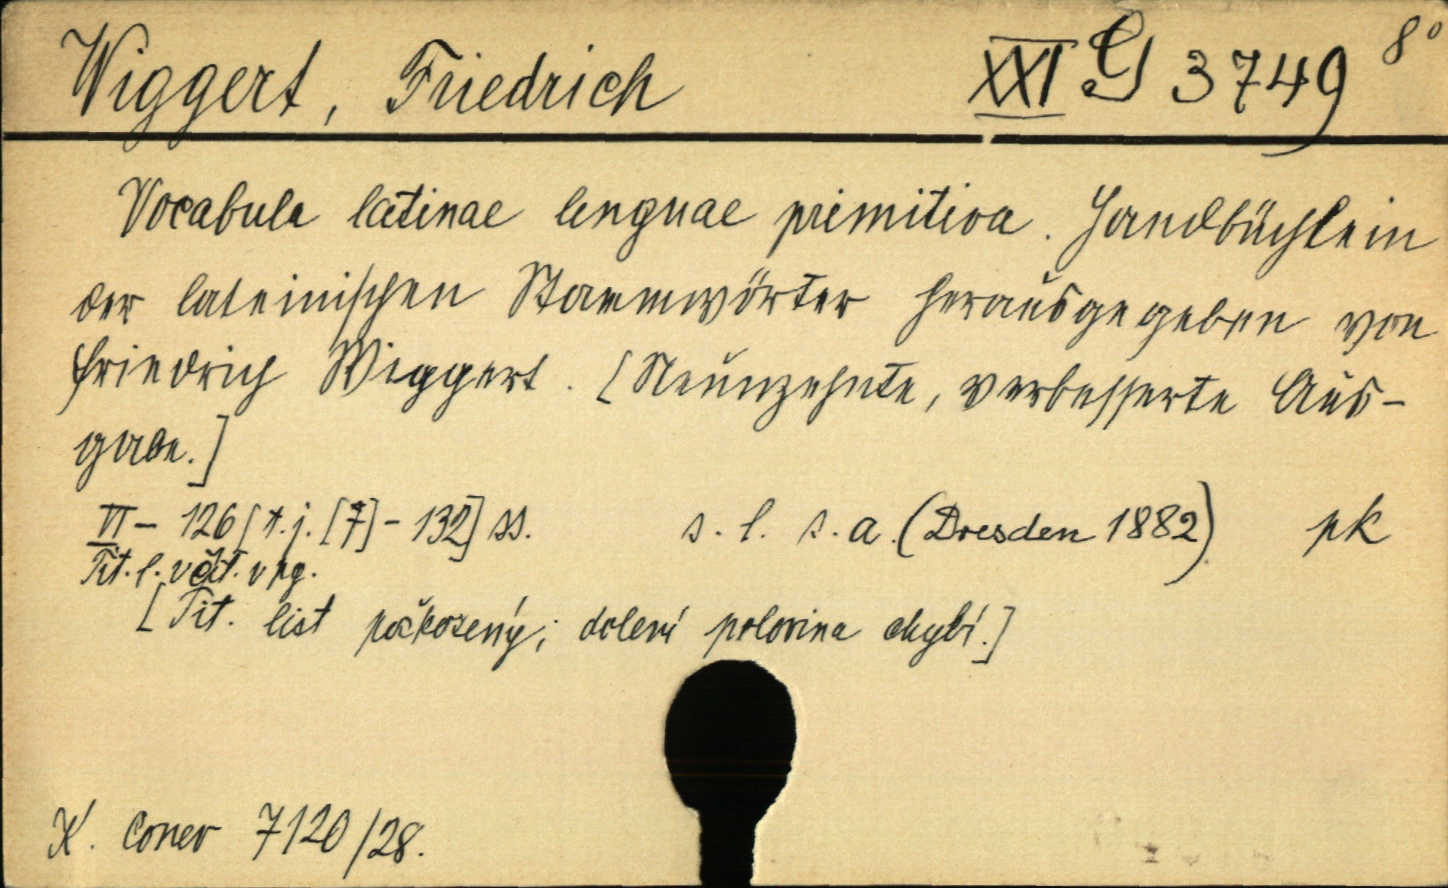 Wiggert, Friedrich XXI G 3749 8°
Vocabula latinae linguae primitiva. Handbüchlein
der lateinischen Stammwörter herausgegeben von
Friedrich Wiggert. [Neunzehnte, verbesserte Aus-
gabe.]
VI - 126 [t.j. [7] - 132] ss. s. l. s. a. (Dresden 1882) pk
Tit. l. v
[Tit. list poškozený; dolení polovina chybí.]
7120/28.